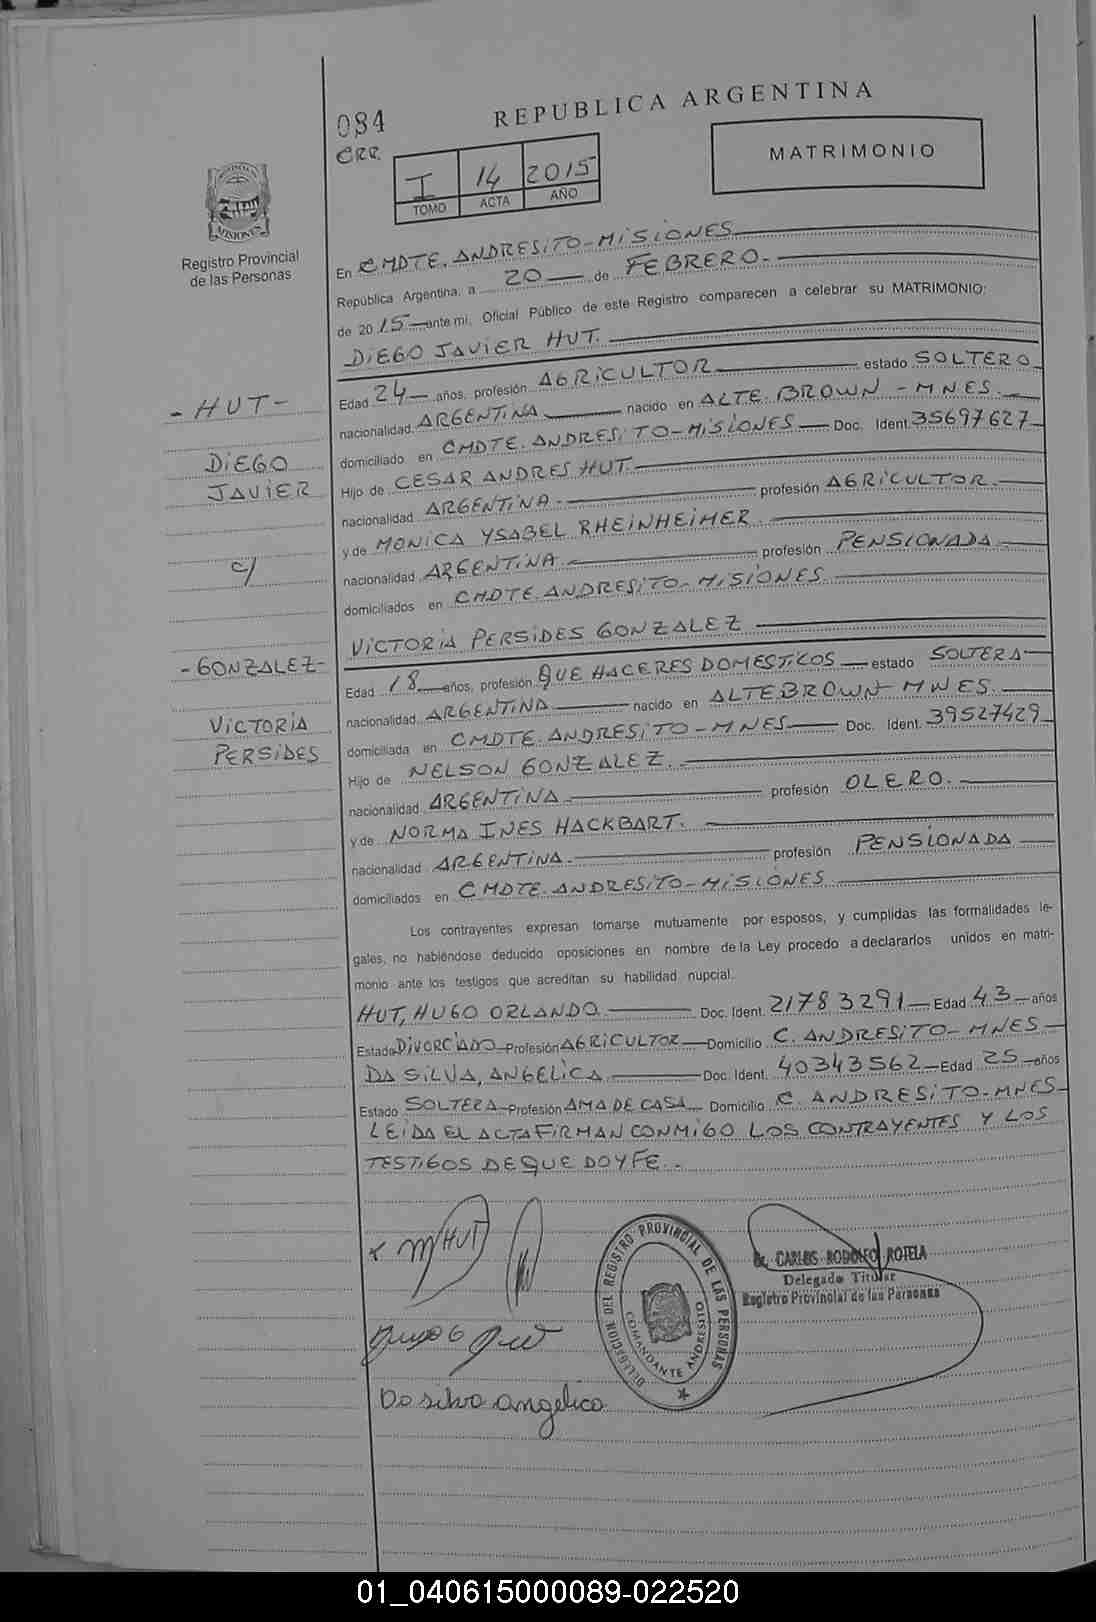 084
REPUBLICA ARGENTINA
CRR.
I 14 2015
TOMO ACTA AÑO
MATRIMONIO
MISIONES
Registro Provincial
de las Personas
En CMDTE. ANDRESITO-MISIONES
República Argentina, a 20 de FEBRERO.-
de 2015 ante mi, Oficial Público de este Registro comparecen a celebrar su MATRIMONIO:
DIEGO JAVIER HUT.
Edad 24 años, profesión AGRICULTOR estado SOLTERO
- HUT -
nacionalidad ARGENTINA nacido en ALTE. BROWN - MNES.
domiciliado en CMDTE. ANDRESITO-MISIONES Doc. Ident. 35697627
DIEGO
Hijo de CESAR ANDRES HUT.
JAVIER
nacionalidad ARGENTINA. profesión AGRICULTOR.
y de MONICA YSABEL RHEINHEIMER
c/
nacionalidad ARGENTINA profesión PENSIONADA
domiciliados en CMDTE. ANDRESITO-MISIONES
VICTORIA PERSIDES GONZALEZ
- GONZALEZ -
Edad 18 años, profesión QUE HACERES DOMESTICOS estado SOLTERA
nacionalidad ARGENTINA nacido en ALTE BROWN- MNES.
VICTORIA
domiciliada en CMDTE. ANDRESITO-MNES Doc. Ident. 39527429
PERSIDES
Hijo de NELSON GONZALEZ.
nacionalidad ARGENTINA profesión OLERO.
y de NORMA INES HACKBART.
nacionalidad ARGENTINA. profesión PENSIONADA
domiciliados en CMDTE. ANDRESITO-MISIONES
Los contrayentes expresan tomarse mutuamente por esposos, y cumplidas las formalidades le-
gales, no habiéndose deducido oposiciones en nombre de la Ley procedo a declararlos unidos en matri-
monio ante los testigos que acreditan su habilidad nupcial.
HUT, HUGO ORLANDO. Doc. Ident. 21783291 Edad 43 años
Estado DIVORCIADO Profesión AGRICULTOR Domicilio C. ANDRESITO-MNES
DA SILVA, ANGELICA Doc. Ident. 40343562 Edad 25 años
Estado SOLTERA Profesión AMA DE CASA Domicilio C. ANDRESITO-MNES
LEIDA EL ACTA FIRMAN CONMIGO LOS CONTRAYENTES Y LOS
TESTIGOS DE QUE DOY FE.
HUT
DELEGACION DEL REGISTRO PROVINCIAL DE LAS PERSONAS
COMANDANTE ANDRESITO
CARLOS RODOLFO ROTELA
Delegado Titular
Registro Provincial de las Personas
Da silva angelica
01_040615000089-022520